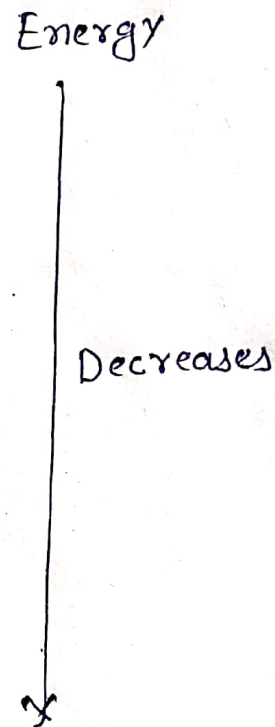 Energy
Decreases